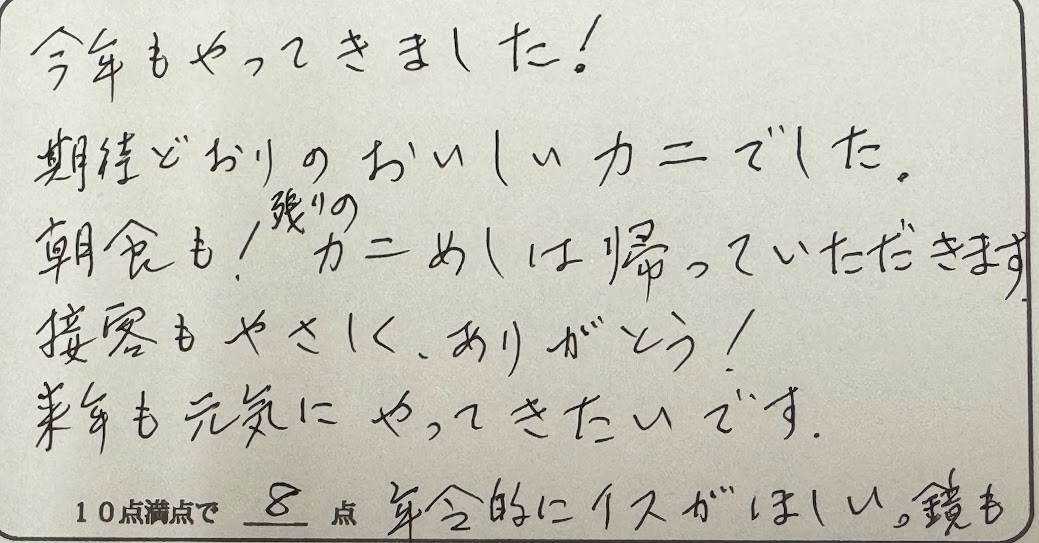 今年もやってきました!
期待どおりのおいしいカニでした。
朝食も!残りのカニめしは帰っていただきます。
接客もやさしく、ありがとう!
来年も元気にやってきたいです。
10点満点で 8 点 年令的にイスがほしい。鏡も